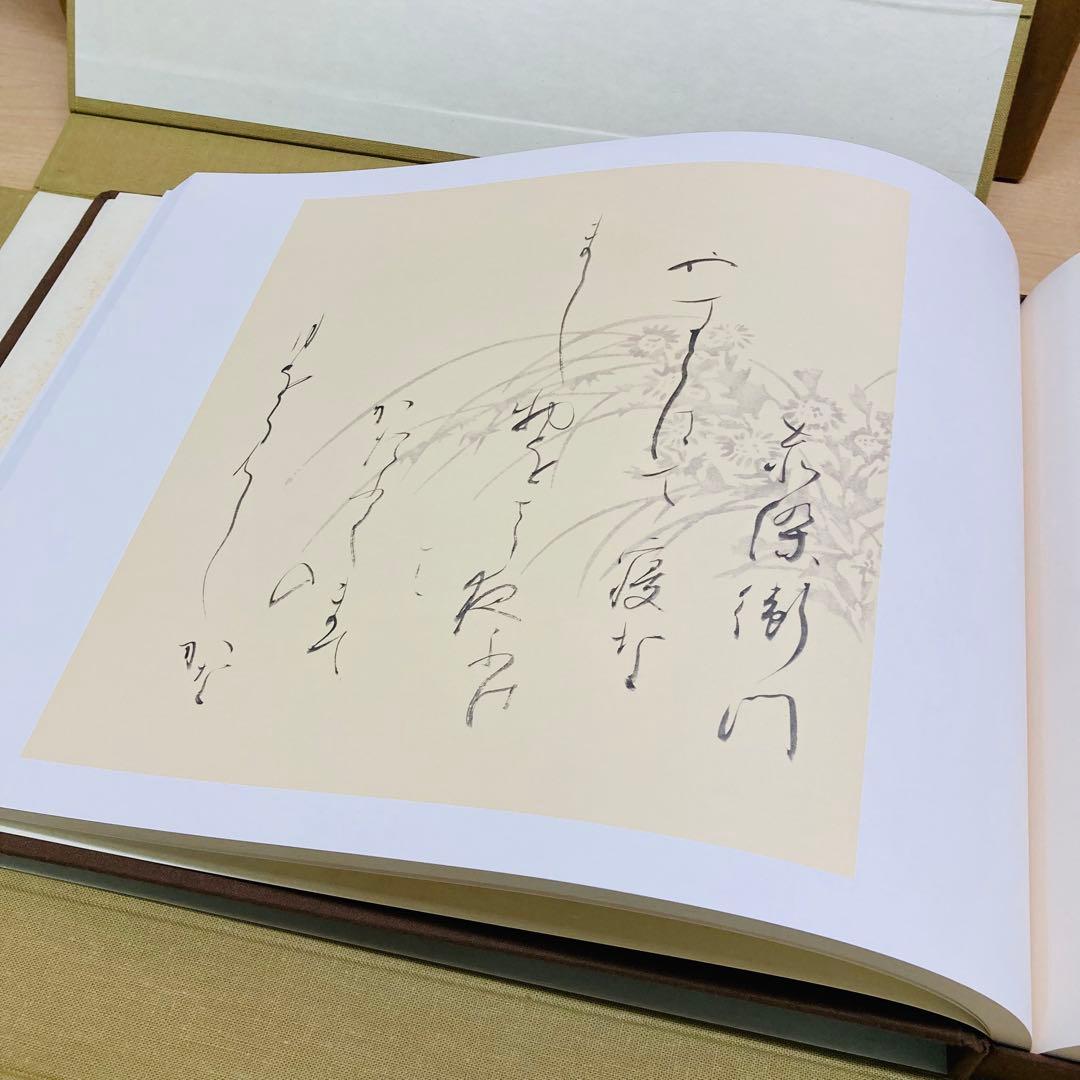 赤染衛門
やすらはて寝な
まし物をさ夜ふけ
て
かたふくまて
の
月をみしかな